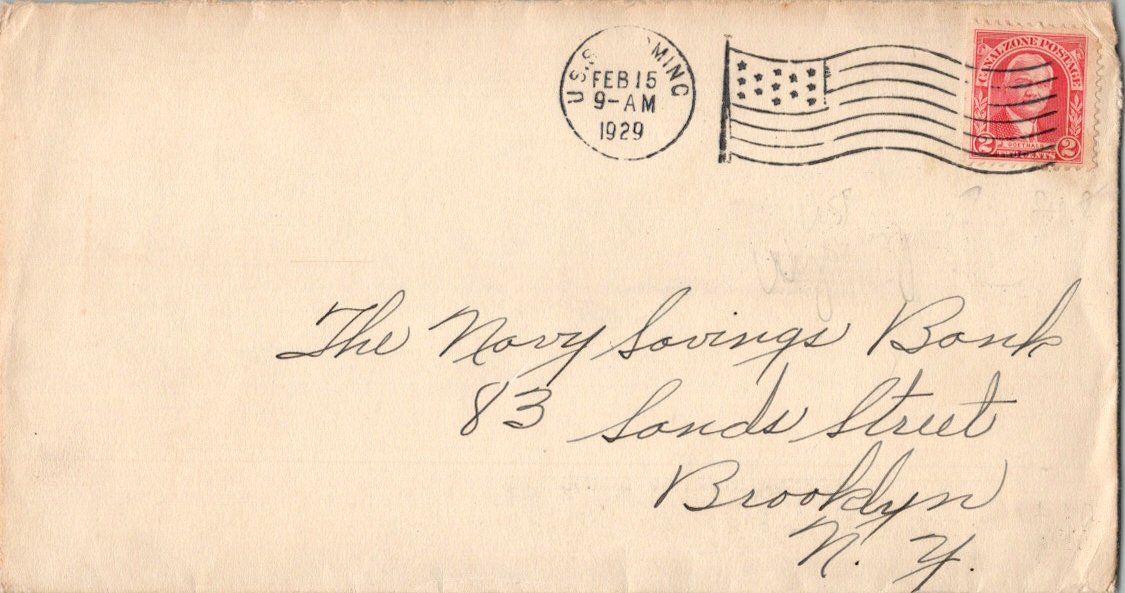 U.S.S. 
FEB 15
9-AM
1929
CANAL ZONE POSTAGE
2 CENTS 2
The Navy Savings Bank
83 Sands Street
Brooklyn
N. Y.